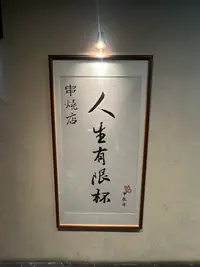 串燒店
人生有限杯